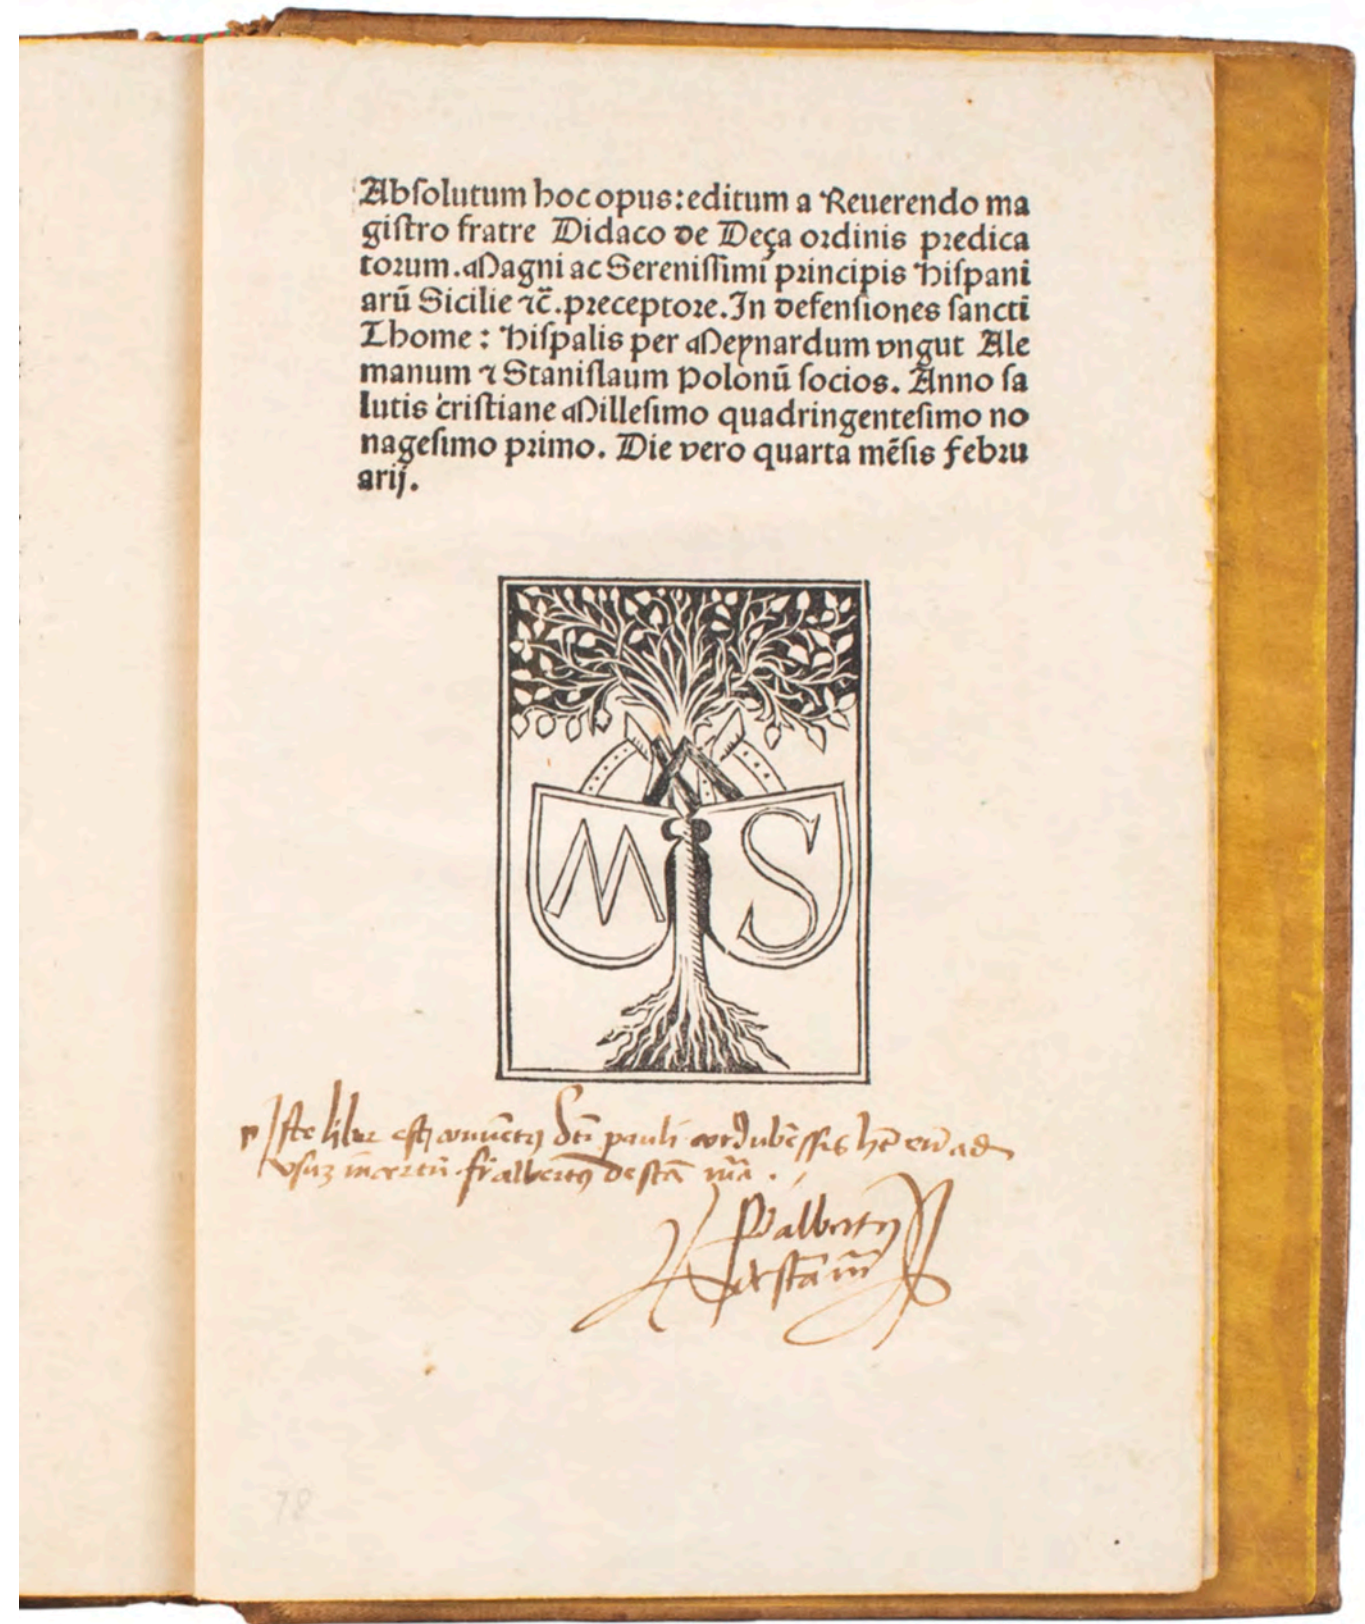 Abſolutum hoc opus: editum a Reuerendo ma
giſtro fratre Didaco de Deça ordinis predica
torum. Magni ac Sereniſſimi principis hiſpani
arū Sicilie ⁊c̄. preceptore. In defenſiones ſancti
Thome: hiſpalis per Meynardum vngut Ale
manum ⁊ Staniſlaum Polonū ſocios. Anno ſa
lutis criſtiane Milleſimo quadringenteſimo no
nageſimo primo. Die vero quarta mēſis febru
arij.
M S
Iſte liber eſt conuētꝰ ſctī pauli cordubēſſis hꝫ eū ad
vſuꝫ fr̄ albertꝰ de ſctā mͣ.
albertꝰ
de ſctā m
78